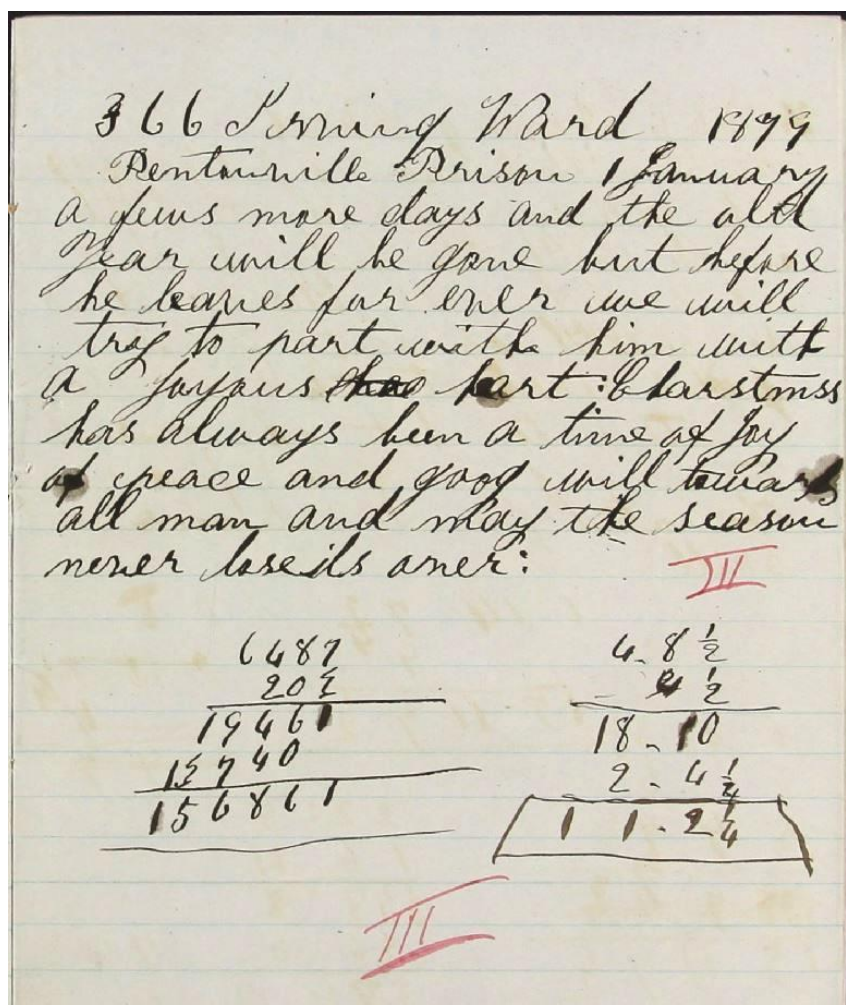 366 Irving Ward 1879
Pentonville Prison 1 January
a fews more days and the old
Year will be gone but before
he leaves for ever we will
try to part with him with
a Joyous hart : Charstmss
has always been a time of Joy
of peace and good will towards
all man and may the season
never lose its oner :
III
6487
20
19461
15740
156861
4 - 8 1/2
4 1/2
18 - 10
2 - 4 1/4
1 1 - 2 1/4
III